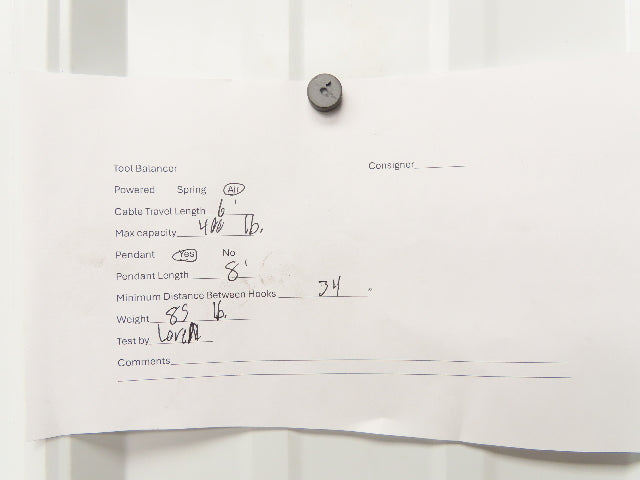 Tool Balancer
Consigner
Powered Spring Air
Cable Travel Length 6'
Max capacity 400 lb.
Pendant Yes No
Pendant Length 8'
Minimum Distance Between Hooks 34 "
Weight 85 lb.
Test by
Comments